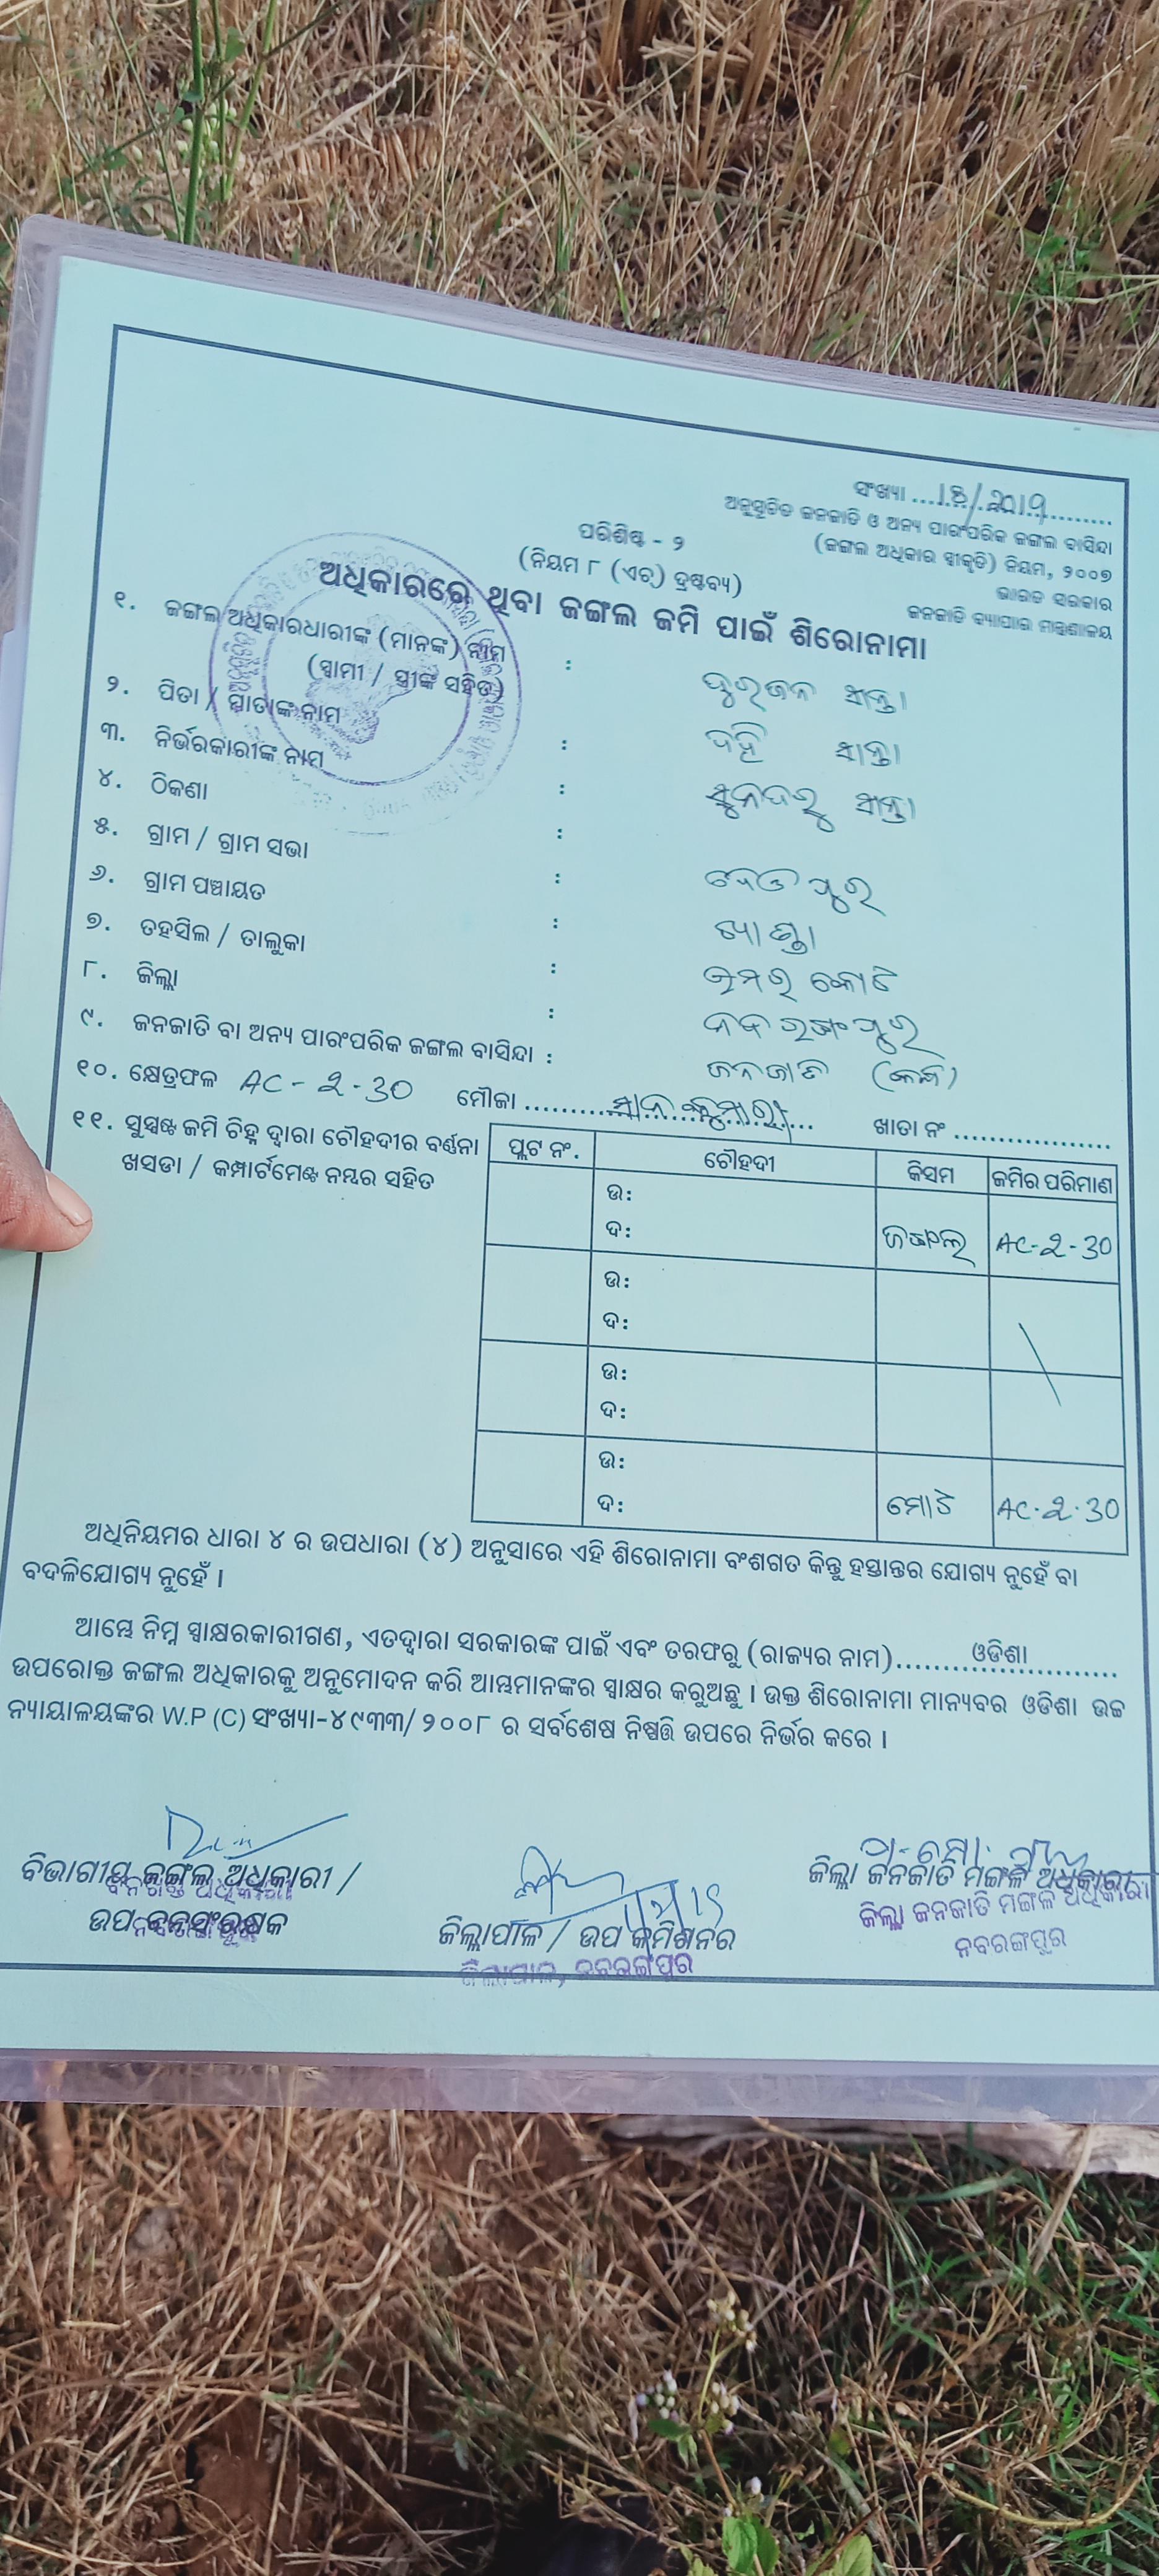 ସଂଖ୍ୟା ....18/2019....
ଅନୁସୂଚିତ ଜନଜାତି ଓ ଅନ୍ୟ ପାରଂପରିକ ଜଙ୍ଗଲ ବାସିନ୍ଦା
(ଜଙ୍ଗଲ ଅଧିକାର ସ୍ୱୀକୃତି) ନିୟମ, ୨୦୦୭
ଭାରତ ସରକାର
ଜନଜାତି ବ୍ୟାପାର ମନ୍ତ୍ରଣାଳୟ
ପରିଶିଷ୍ଟ - ୨
(ନିୟମ ୮ (ଏଚ୍) ଦ୍ରଷ୍ଟବ୍ୟ)
ଅଧିକାରରେ ଥିବା ଜଙ୍ଗଲ ଜମି ପାଇଁ ଶିରୋନାମା
୧. ଜଙ୍ଗଲ ଅଧିକାରଧାରୀଙ୍କ (ମାନଙ୍କ) ନାମ :
(ସ୍ୱାମୀ / ସ୍ତ୍ରୀଙ୍କ ସହିତ)
୨. ପିତା / ମାତାଙ୍କ ନାମ :
୩. ନିର୍ଭରକାରୀଙ୍କ ନାମ :
୪. ଠିକଣା :
୫. ଗ୍ରାମ / ଗ୍ରାମ ସଭା :
୬. ଗ୍ରାମ ପଞ୍ଚାୟତ :
୭. ତହସିଲ / ତାଲୁକା : ଉମରକୋଟ
୮. ଜିଲ୍ଲା : ନବରଙ୍ଗପୁର
୯. ଜନଜାତି ବା ଅନ୍ୟ ପାରଂପରିକ ଜଙ୍ଗଲ ବାସିନ୍ଦା : ଜନଜାତି
୧୦. କ୍ଷେତ୍ରଫଳ AC - 2 - 30 ମୌଜା .......... ଖାତା ନଂ ..................
୧୧. ସୁସ୍ପଷ୍ଟ ଜମି ଚିହ୍ନ ଦ୍ୱାରା ଚୌହଦୀର ବର୍ଣ୍ଣନା
ଖସଡା / କମ୍ପାର୍ଟମେଣ୍ଟ ନମ୍ୱର ସହିତ
ପ୍ଲଟ ନଂ. ଚୌହଦୀ କିସମ ଜମିର ପରିମାଣ
ଉ:
ଦ: ଜଙ୍ଗଲ AC-2-30
ଉ:
ଦ:
ଉ:
ଦ:
ଉ:
ଦ: ମୋଟ AC-2-30
ଅଧିନିୟମର ଧାରା ୪ ର ଉପଧାରା (୪) ଅନୁସାରେ ଏହି ଶିରୋନାମା ବଂଶଗତ କିନ୍ତୁ ହସ୍ତାନ୍ତର ଯୋଗ୍ୟ ନୁହେଁ ବା
ବଦଳିଯୋଗ୍ୟ ନୁହେଁ ।
ଆମ୍ଭେ ନିମ୍ନ ସ୍ୱାକ୍ଷରକାରୀଗଣ, ଏତଦ୍ଦ୍ୱାରା ସରକାରଙ୍କ ପାଇଁ ଏବଂ ତରଫରୁ (ରାଜ୍ୟର ନାମ).......ଓଡିଶା.......
ଉପରୋକ୍ତ ଜଙ୍ଗଲ ଅଧିକାରକୁ ଅନୁମୋଦନ କରି ଆମ୍ଭମାନଙ୍କର ସ୍ୱାକ୍ଷର କରୁଅଛୁ । ଉକ୍ତ ଶିରୋନାମା ମାନ୍ୟବର ଓଡିଶା ଉଚ୍ଚ
ନ୍ୟାୟାଳୟଙ୍କର W.P (C) ସଂଖ୍ୟା-୪୯୩୩/୨୦୦୮ ର ସର୍ବଶେଷ ନିଷ୍ପତ୍ତି ଉପରେ ନିର୍ଭର କରେ ।
ବିଭାଗୀୟ ଜଙ୍ଗଲ ଅଧିକାରୀ /
ଉପ ବନସଂରକ୍ଷକ
ଜିଲ୍ଲାପାଳ / ଉପ କମିଶନର
ଜିଲ୍ଲାପାଳ, ନବରଙ୍ଗପୁର
ଜିଲ୍ଲା ଜନଜାତି ମଙ୍ଗଳ ଅଧିକାରୀ
ଜିଲ୍ଲା ଜନଜାତି ମଙ୍ଗଳ ଅଧିକାରୀ
ନବରଙ୍ଗପୁର